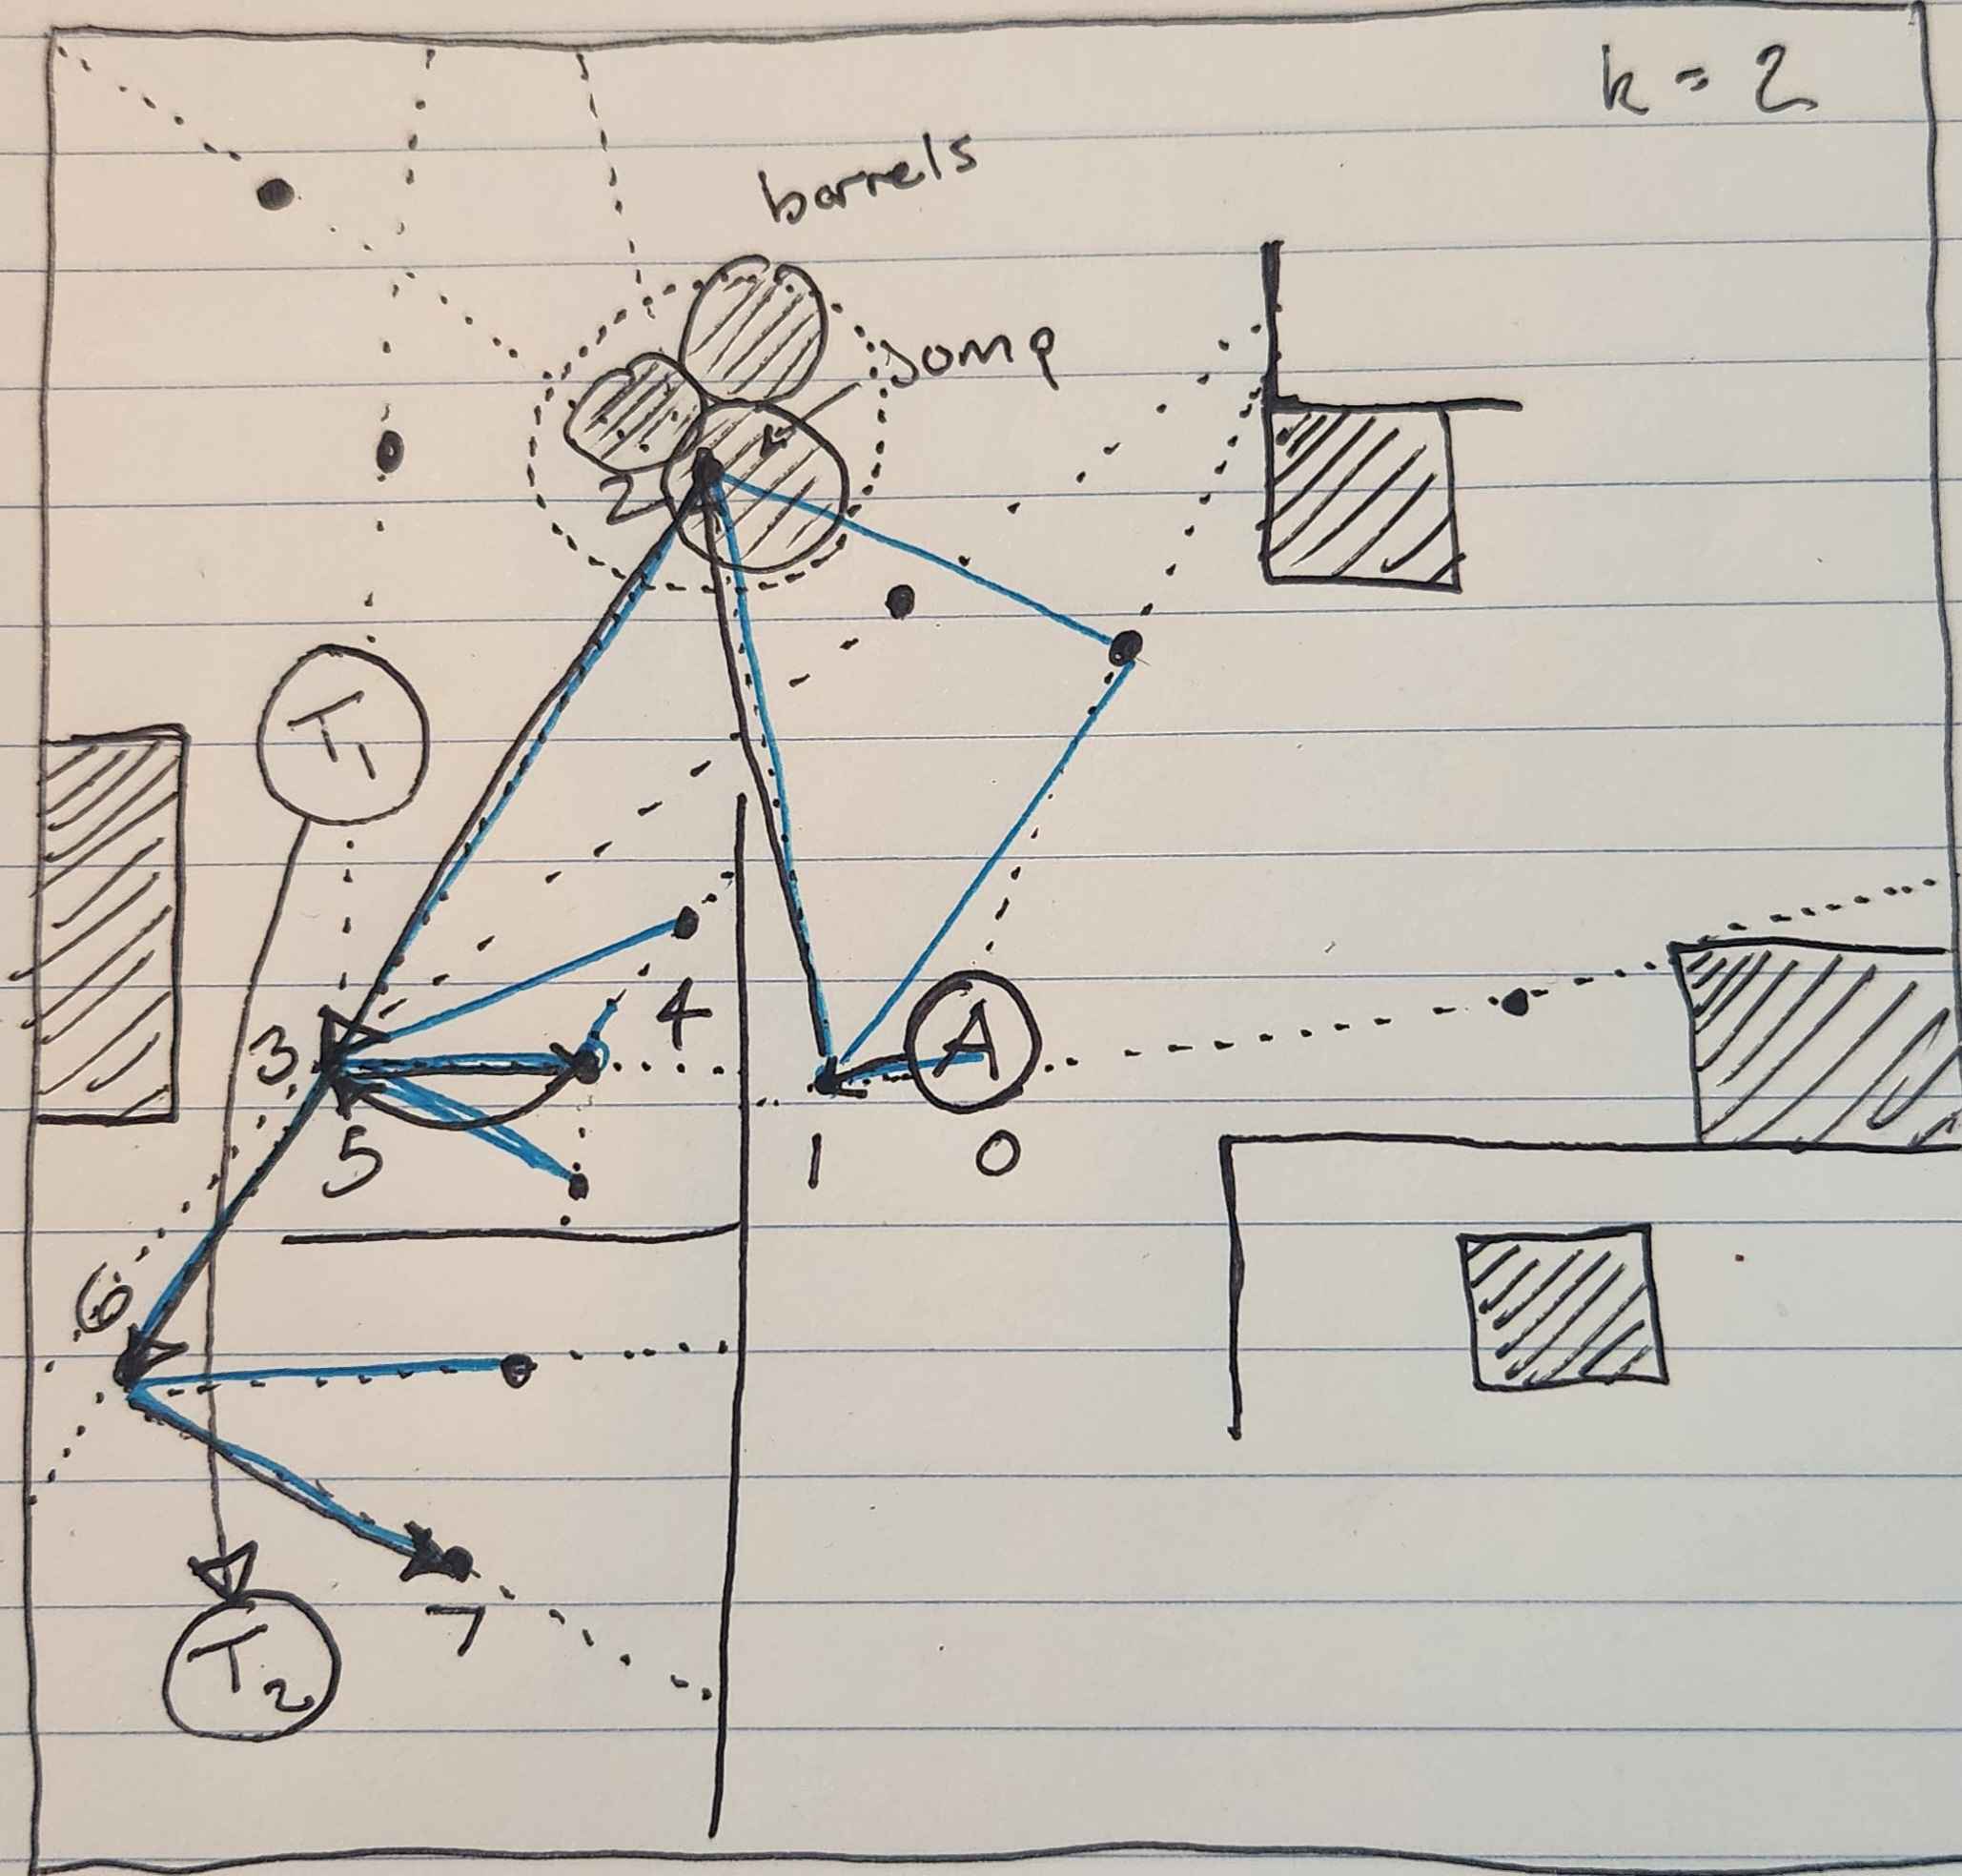 k = 2
barrels
Jump
2
T1
A
4
3
5
1
0
6
7
T2